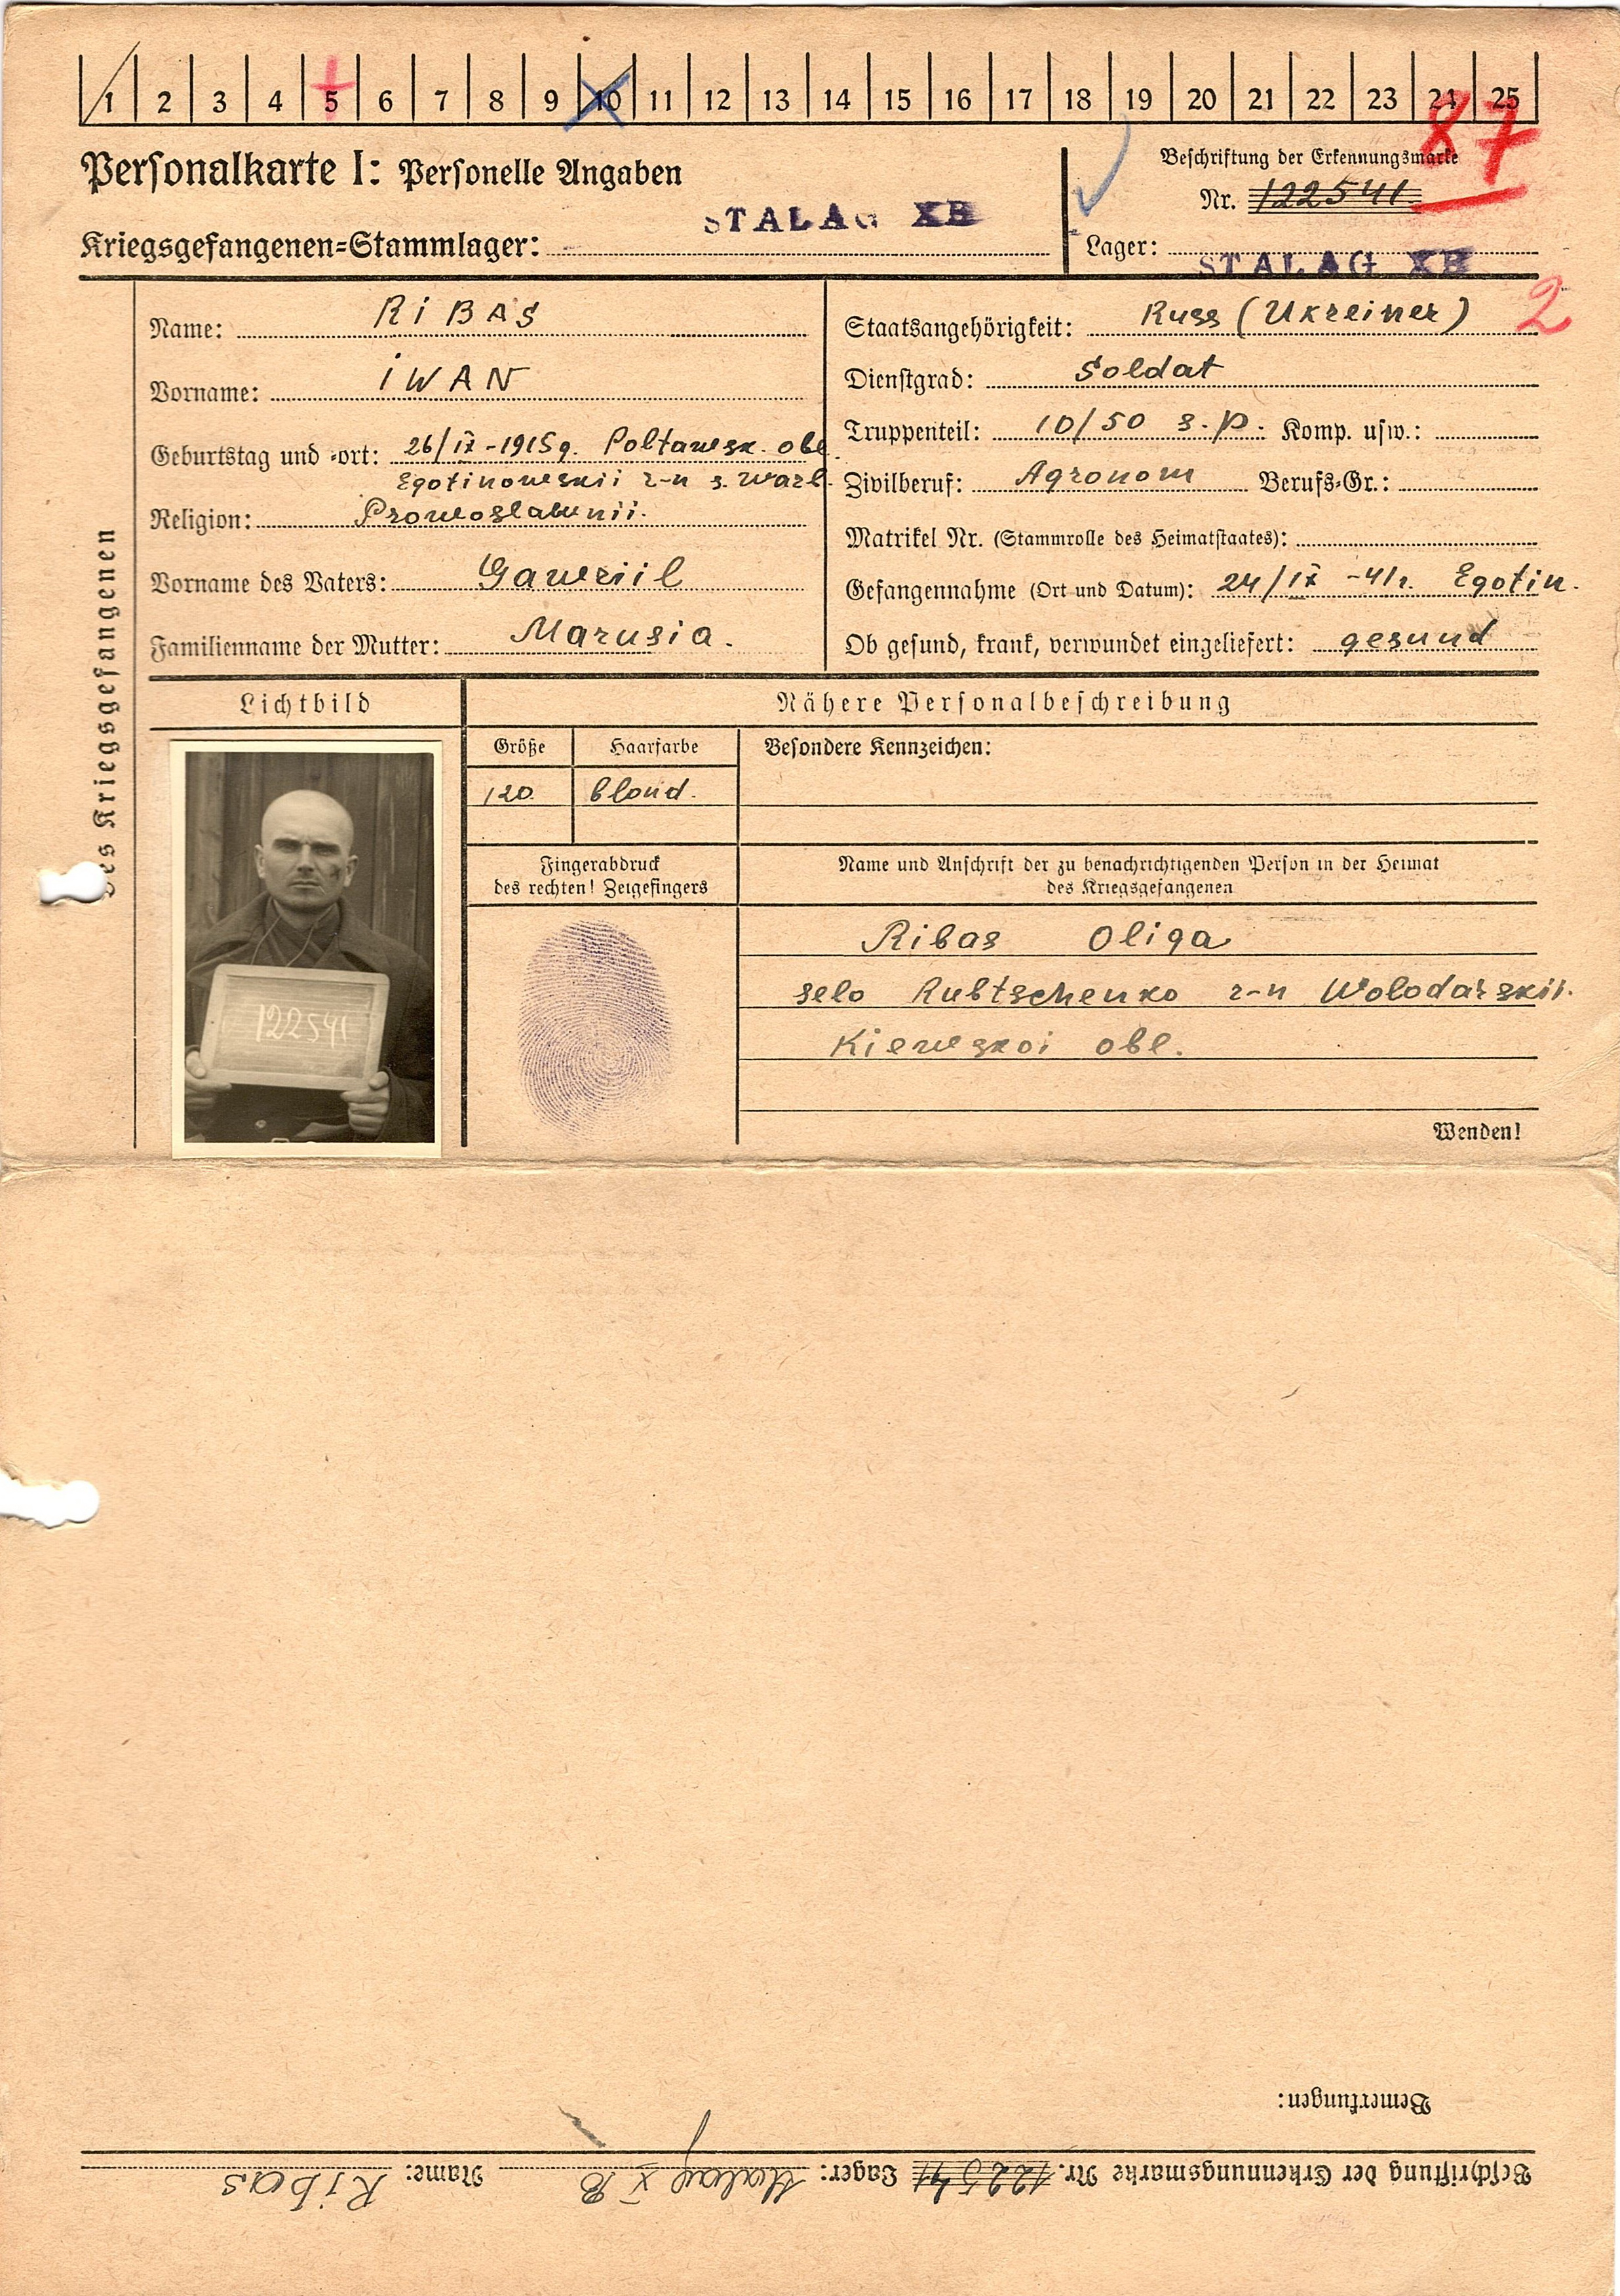 1 2 3 4 5 6 7 8 9 10 11 12 13 14 15 16 17 18 19 20 21 22 23 24 25
87
Personalkarte I: Personelle Angaben
Beschriftung der Erkennungsmarke
Nr. 122541
STALAG XB
Kriegsgefangenen=Stammlager:
Lager: STALAG XB
2
Name: RiBAS
Vorname: iWAN
Geburtstag und =ort: 26/IX-1915g. Poltawsk. obl.
Egotinowskii r-n s.
Religion: Prowoslawnii.
Vorname des Vaters: Gawriil
Familienname der Mutter: Marusia.
Staatsangehörigkeit: Russ (Ukreiner)
Dienstgrad: Soldat
Truppenteil: 10/50 s.p. Komp. usw.:
Zivilberuf: Agronom Berufs=Gr.:
Matrikel Nr. (Stammrolle des Heimatstaates):
Gefangennahme (Ort und Datum): 24/IX -41r. Egotin.
Ob gesund, krank, verwundet eingeliefert: gesund
des Kriegsgefangenen
Lichtbild
122541
Nähere Personalbeschreibung
Größe
Haarfarbe
Besondere Kennzeichen:
120
blond.
Fingerabdruck
des rechten! Zeigefingers
Name und Anschrift der zu benachrichtigenden Person in der Heimat
des Kriegsgefangenen
Ribas Oliga
selo Rubtschenko r-n Wolodarskii.
Kiewskoi obl.
Wenden!
Bemerkungen:
Beschriftung der Erkennungsmarke Nr. 122541 Lager: Stalag XB Name: Ribas